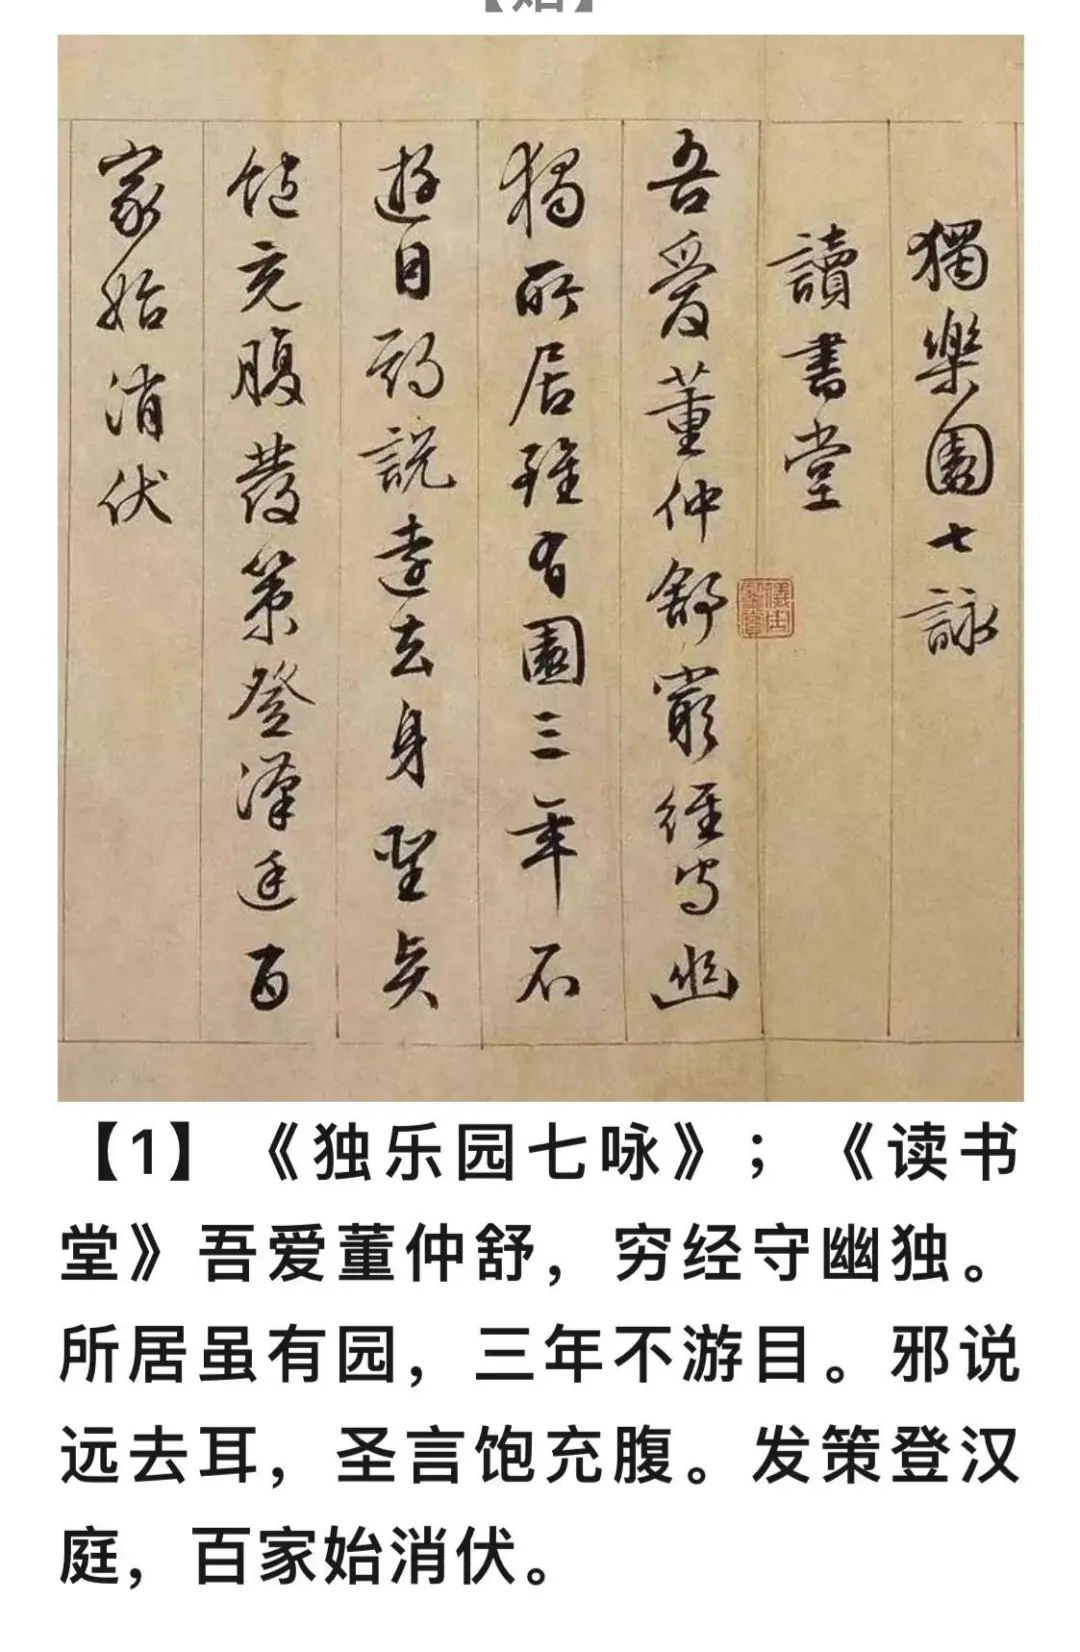 獨樂園七詠
讀書堂
吾愛董仲舒窮經守幽
獨所居雖有園三年不
遊目邪說遠去身聖矣
飽充腹發策登漢廷百
家始消伏
【1】《独乐园七咏》；《读书
堂》吾爱董仲舒，穷经守幽独。
所居虽有园，三年不游目。邪说
远去耳，圣言饱充腹。发策登汉
庭，百家始消伏。